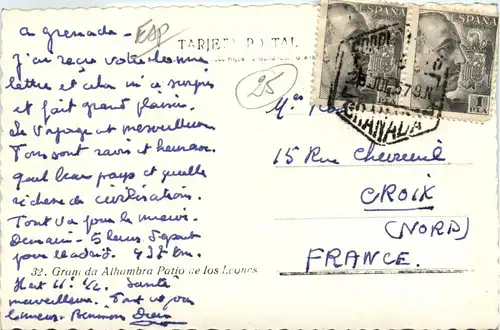 a grenada -
ESP
TARJETA POSTAL
25
J'ai reçu votre bonne
lettre et cela m'a surpris
et fait grand plaisir.
Le Voyage est merveilleux
Tous sont ravis et heureux.
Quel beau pays et quelle
richesse de civilisation.
Tout va pour le mieux.
Demain - 5 heures départ
pour Madrid. 438 km.
32. Granada Alhambra Patio de los Leones
Santé
merveilleuse. Tout va pour
le mieux.
ESPAÑA
ESPAÑA
GRANADA
1
15 Rue Chevreul
CROIX
(NORD)
FRANCE.